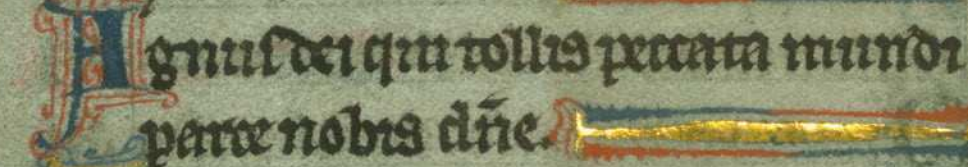 Agnus dei qui tollis peccata mundi
parce nobis dn̄e.